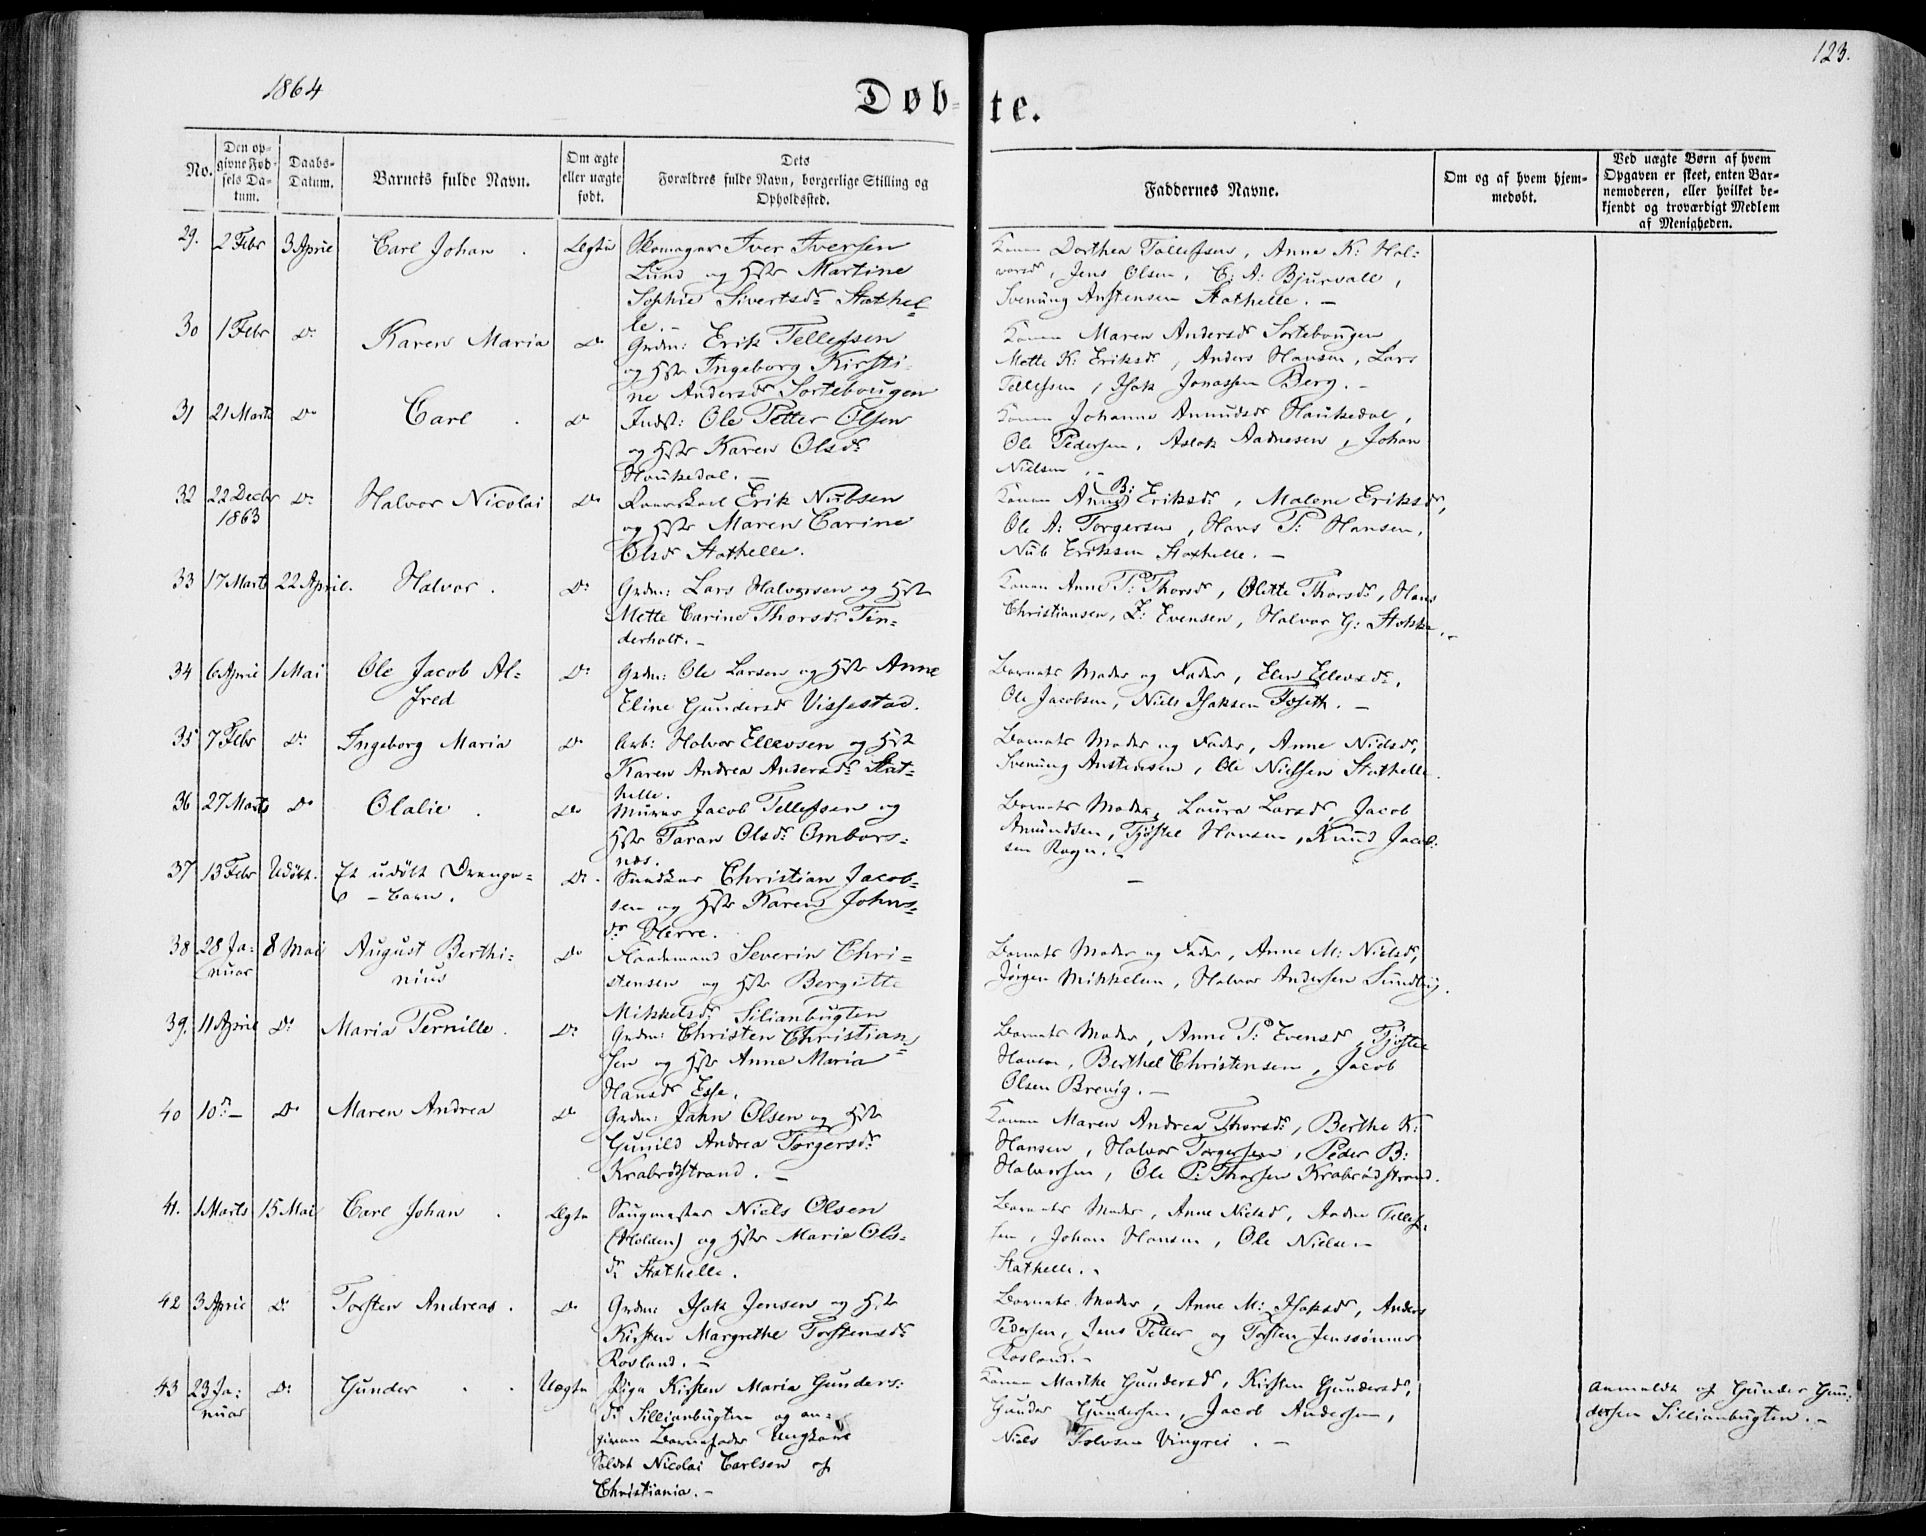 1864
123.
Døb-
te.
No.
Den op-
givne Fød-
sels Da-
tum.
Daabs-
Datum.
Barnets fulde Navn.
Om ægte
eller uægte
født.
Dets
Forældres fulde Navn, borgerlige Stilling og
Opholdssted.
Faddernes Navne.
Om og af hvem hjem-
medøbt.
Ved uægte Børn af hvem
Opgaven er skeet, enten Bar-
nemoderen, eller hvilket be-
kjendt og troværdigt Medlem
af Menigheden.
29. 2 Febr 3 April Carl Johan . Ægte Skomager Iver Iversen
Lund og Hstr Martine
Sophie Sivertsdr Stathel-
le. -
Konen Dorthea Tollefsen, Anne K: Hal-
vorsdr, Jens Olsen, C: A: Bjurvall,
Svenung Anstensen Stathelle. -
30 1 Febr Do Karen Maria Do Grdm: Erik Tellefsen
og Hstr Ingeborg Kirsti-
ne Andersdr Sortebougen
Konen Maren Andersdr Sortebougen,
Mette K: Eriksdr, Anders Hansen, Lars
Tellefsen, Isak Jonassen Berg. -
31 21 Marts Do Carl . Do Indst: Ole Petter Olsen
og Hstr Karen Olsdr
Haukedal. -
Konen Johanne Amundsdr Haukedal,
Ole Pedersen, Aslak Aadnesen, Johan
Nielsen. -
32 22 Decbr
1863 Do Halvor Nicolai Do Erik Nubsen
og Hstr Maren Carine
Olsdr Stathelle.
Konen Anne B: Eriksdr, Malene Eriksdr,
Ole A: Torgersen, Hans P: Hansen,
Nub Eriksen Stathelle. -
33 17 Marts 22 April. Halvor . Do Grdm: Lars Halvorsen og Hstr
Mette Carine Thorsdr Tin-
derholt. -
Konen Anne P: Thorsdr, Olette Thorsdr, Hans
Christiansen, Z: Evensen, Halvor G: Stokke. -
34 6 April 1 Mai Ole Jacob Al-
fred Do Grdm: Ole Larsen og Hstr Anne
Eline Gundersdr Vissestad.
Barnets Moder og Fader, Elen Ellevsdr,
Ole Jacobsen, Niels Isaksen Foseth. -
35 7 Febr Do Ingeborg Maria Do Arb: Halvor Ellevsen og Hst
Karen Andrea Andersdr Stat-
helle.
Barnets Moder og Fader, Anne Nielsdr,
Svenung Anstensen, Ole Nielsen Stathelle.
36 27 Marts Do Olalie . Do Murer Jacob Tellefsen og
Hstr Taran Olsdr Ombors-
næs.
Barnets Moder, Laura Larsdr, Jacob
Amundsen, Tjøstel Hansen, Knud Jacob-
sen Rogn. -
37 13 Febr Udøbt. Et udøbt Drenge-
- barn. Do. Snedker Christian Jacob-
sen og Hstr Karen Johns-
dr Herre.
-
38 28 Ja-
nuar 8 Mai August Berthi-
nius Do Severin Chri-
stensen og Hstr Bergitte
Mikkelsdr Silianbugten
Barnets Moder og Fader, Anne M: Nielsdr,
Jørgen Mikkelsen, Halvor Andersen Sundby.
39. 11 April Do Maria Pernille. Do Grdm: Christen Christian-
sen og Hstr Anne Maria
Hansdr Esse.
Barnets Moder, Anne P: Evensdr, Tjøstel
Hansen, Berthel Christensen, Jacob
Olsen Brevig. -
40 10de - Do Maren Andrea Do Grdm: Jahn Olsen og Hstr
Gunild Andrea Torgersdr
Krabrødstrand. -
Konen Maren Andrea Thorsdr, Berthe K:
Hansen, Halvor Torgersen, Peder B:
Halvorsen, Ole P: Thorsen Krabrødstrand.
41. 1 Marts 15 Mai Carl Johan . Ægte Saugmester Niels Olsen
(Holden) og Hstr Marie Ols-
dr Stathelle.
Barnets Moder, Anne Nielsdr, Andrea Tellef-
sen, Johan Hansen, Ole Nielsen
Stathelle. -
42 3 April Do Torsten Andreas . Do Grdm: Isak Jensen og Hstr
Kirsten Margrethe Torstensdr
Rosland. -
Barnets Moder, Anne M: Isaksdr, Anders
Pedersen, Jens Peter og Torsten Jenssønner
Rosland. -
43 23 Ja-
nuar Do Gunder . . Uægte Pige Kirsten Maria Gunders-
dr Sillianbugten og an-
given Barnefader Ungkarl
Soldat Nicolai Carlsen af
Christiania. -
Konen Marthe Gundersdr, Kirsten Gundersdr,
Gunder Gundersen, Jacob Andersen,
Niels Tolvsen Vingrei . -
Anmeldt af Gunder Gun-
dersen Sillianbugten. -